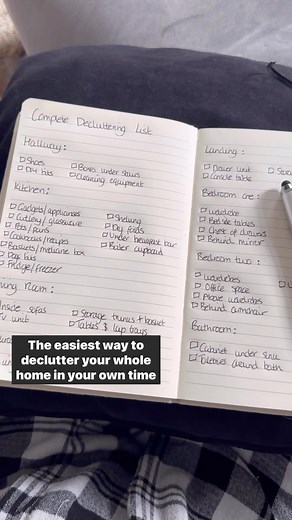 Complete Decluttering List
Hallway:
Shoes
DIY bits
Boxes under stairs
Cleaning equipment
Kitchen:
Gadgets/appliances
Cutlery/glassware
Pots/pans
Cookbooks/recipes
Baskets/medicine box
Dog bits
Fridge/freezer
Shelving
Dry foods
Under breakfast bar
Boiler cupboard
Room:
Inside sofas
TV unit
Storage trunks + basket
Tables & lap trays
Landing:
Drawer unit
Console table
Bedroom one:
Wardrobe
Bedside tables
Chest of drawers
Behind mirror
Bedroom two:
Wardrobes
Office space
Above wardrobes
Behind armchair
Bathroom:
Cabinet under sink
Toiletries around bath
The easiest way to
declutter your whole
home in your own time